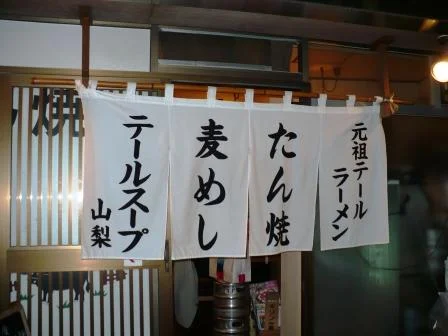 元祖テール
ラーメン
たん焼
麦めし
テールスープ
山梨
焼